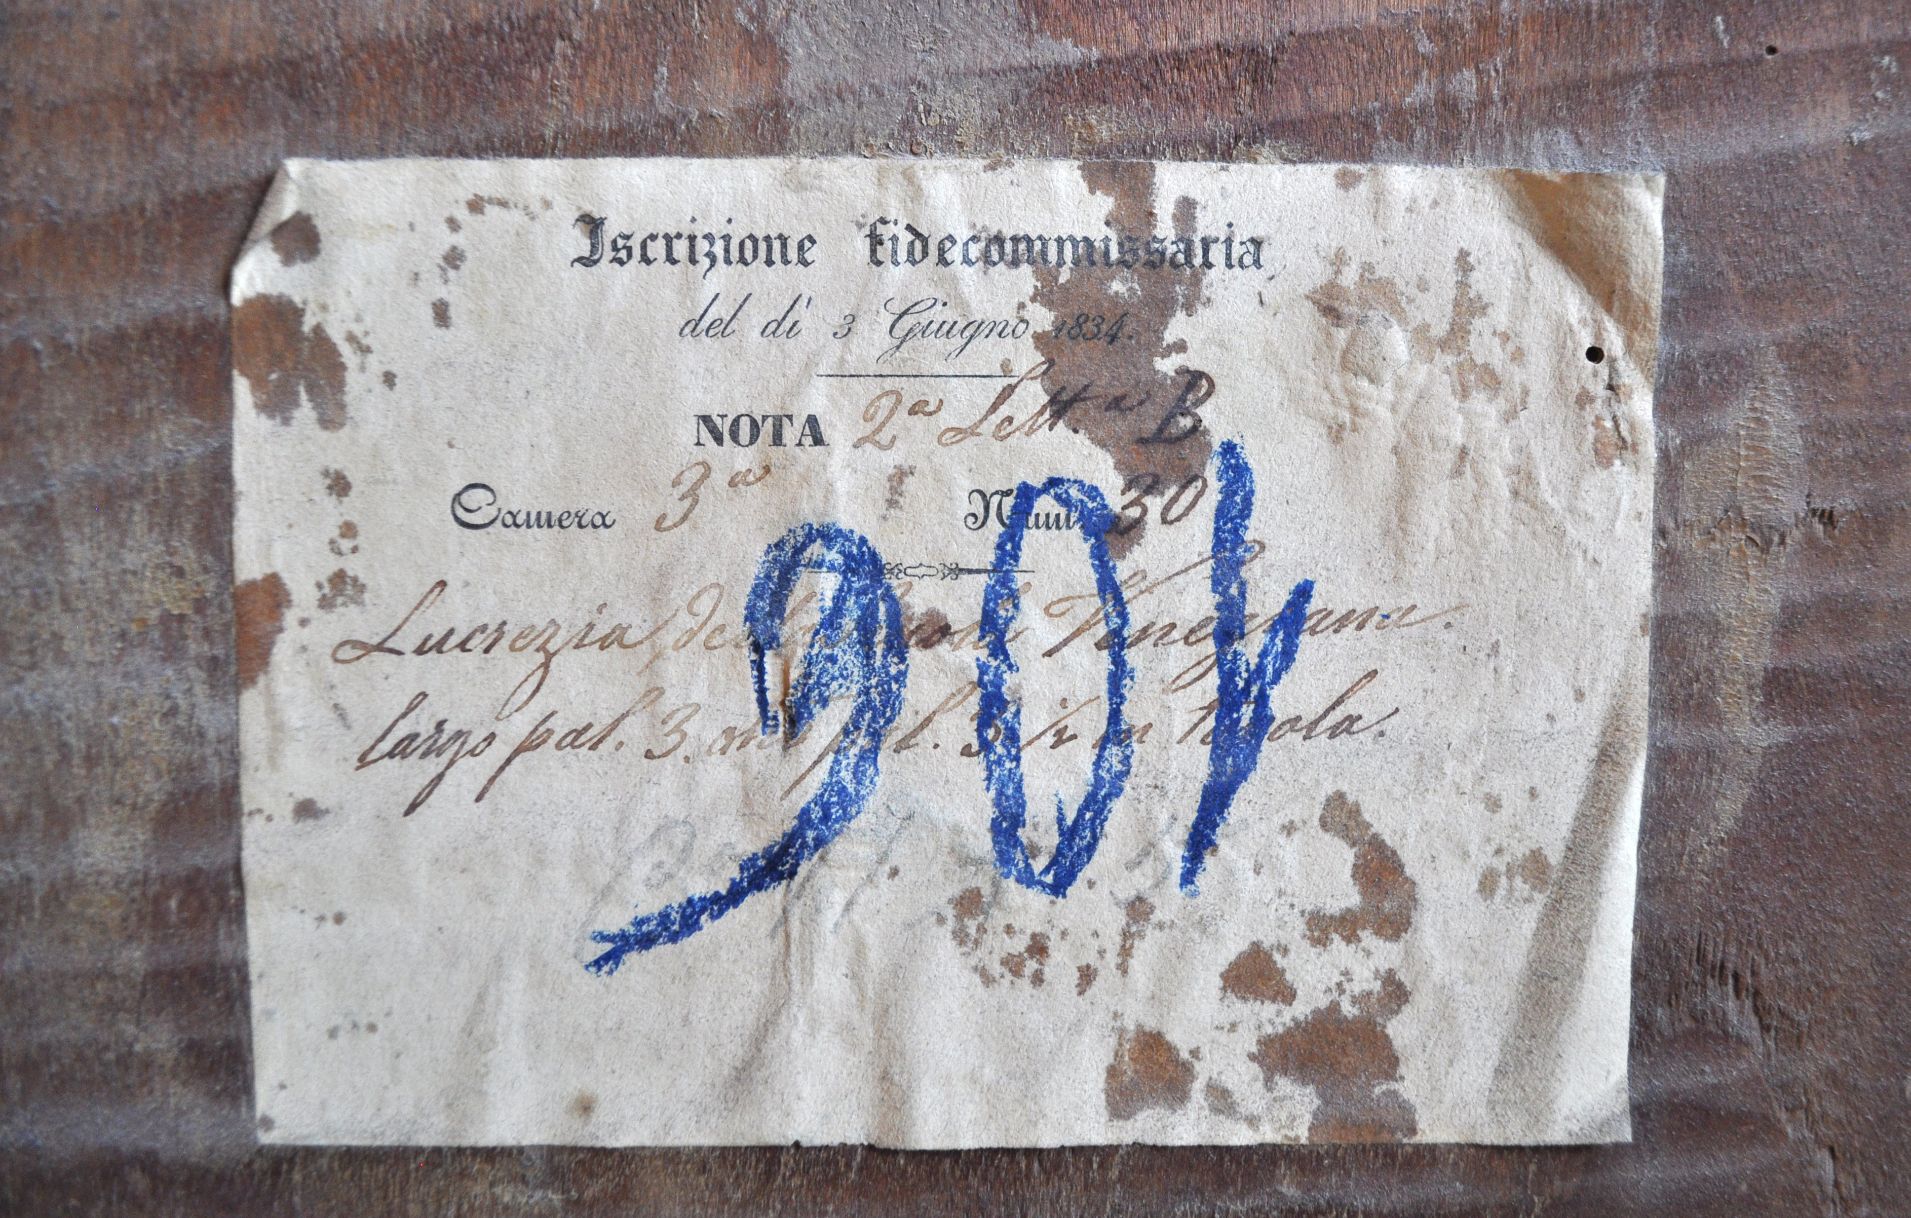 Iscrizione fidecommissaria
del dì 3 Giugno 1834.
NOTA 2ª Lett.ª B
Camera 3ª Num. 30
Lucrezia, della
largo pal. 3. alto pal. 3 1/2 in tavola.
901